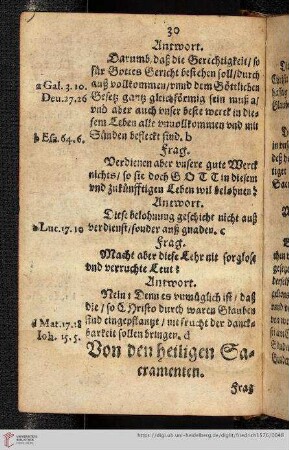 30
Antwort.
Darumb, daß die Gerechtigkeit/ so
für Gottes Gericht bestehen soll/ durch
a Gal. 3. 10. auß vollkommen/ vnnd dem Göttlichen
Deu. 27. 26 Gesetz gantz gleichförmig sein muß a/
vnd aber auch vnser beste werck in die-
sem Leben alle vnuollkommen vnd mit
b Esa. 64. 6. Sünden befleckt sind. b
Frag.
Verdienen aber vnsere gute Werck
nichts/ so sie doch GOTT in diesem
vnd zukünfftigen Leben wil belohnen?
Antwort.
Diese belohnung geschicht nicht auß
c Luc. 17. 10 verdienst/ sonder auß gnaden. c
Frag.
Macht aber diese Lehr nit sorglose
vnd verruchte Leut?
Antwort.
Nein: Denn es vnmüglich ist/ daß
die/ so Christo durch waren Glauben
d Mat. 17. 18 sind eingepflantzt/ nit frucht der danck-
Ioh. 15. 5. barkeit sollen bringen. d
Von den heiligen Sa-
cramenten.
Frag